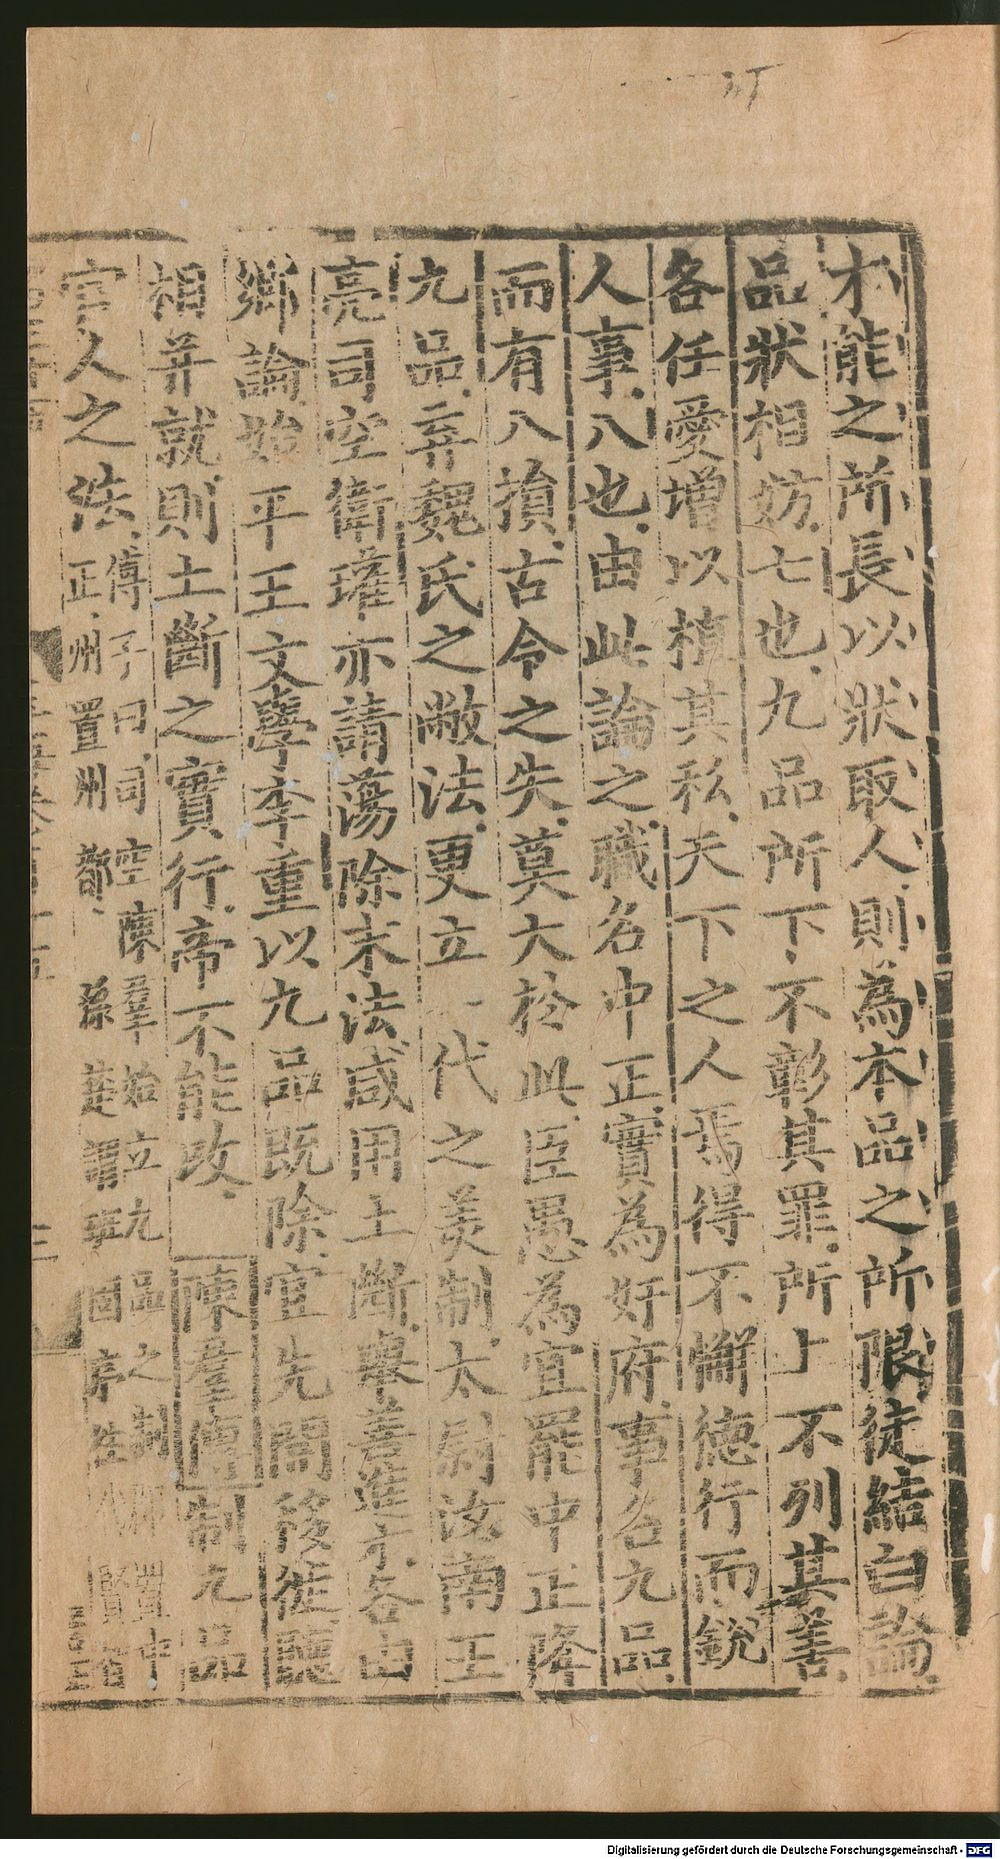 才能之所長以狀取人則為本品之所限徒結白論
品狀相妨七也九品所下不彰其罪所上不列其善
各任愛增以植其私天下之人焉得不懈德行而銳
人事八也由此論之職名中正實為奸府事名九品
而有八損古今之失莫大於此臣愚為宜罷中正除
九品弃魏氏之敝法更立一代之美制太尉汝南王
亮司空衛瓘亦請蕩除末法咸用土斷舉善進才各由
鄉論始平王文學李重以九品既除宜先開移徙聽
相并就則土斷之實行帝不能改陳羣傳制九品
官人之法傅子曰司空陳羣始立九品之制郡置中
正州置州都孫楚謂班固序
Digitalisierung gefördert durch die Deutsche Forschungsgemeinschaft - DFG